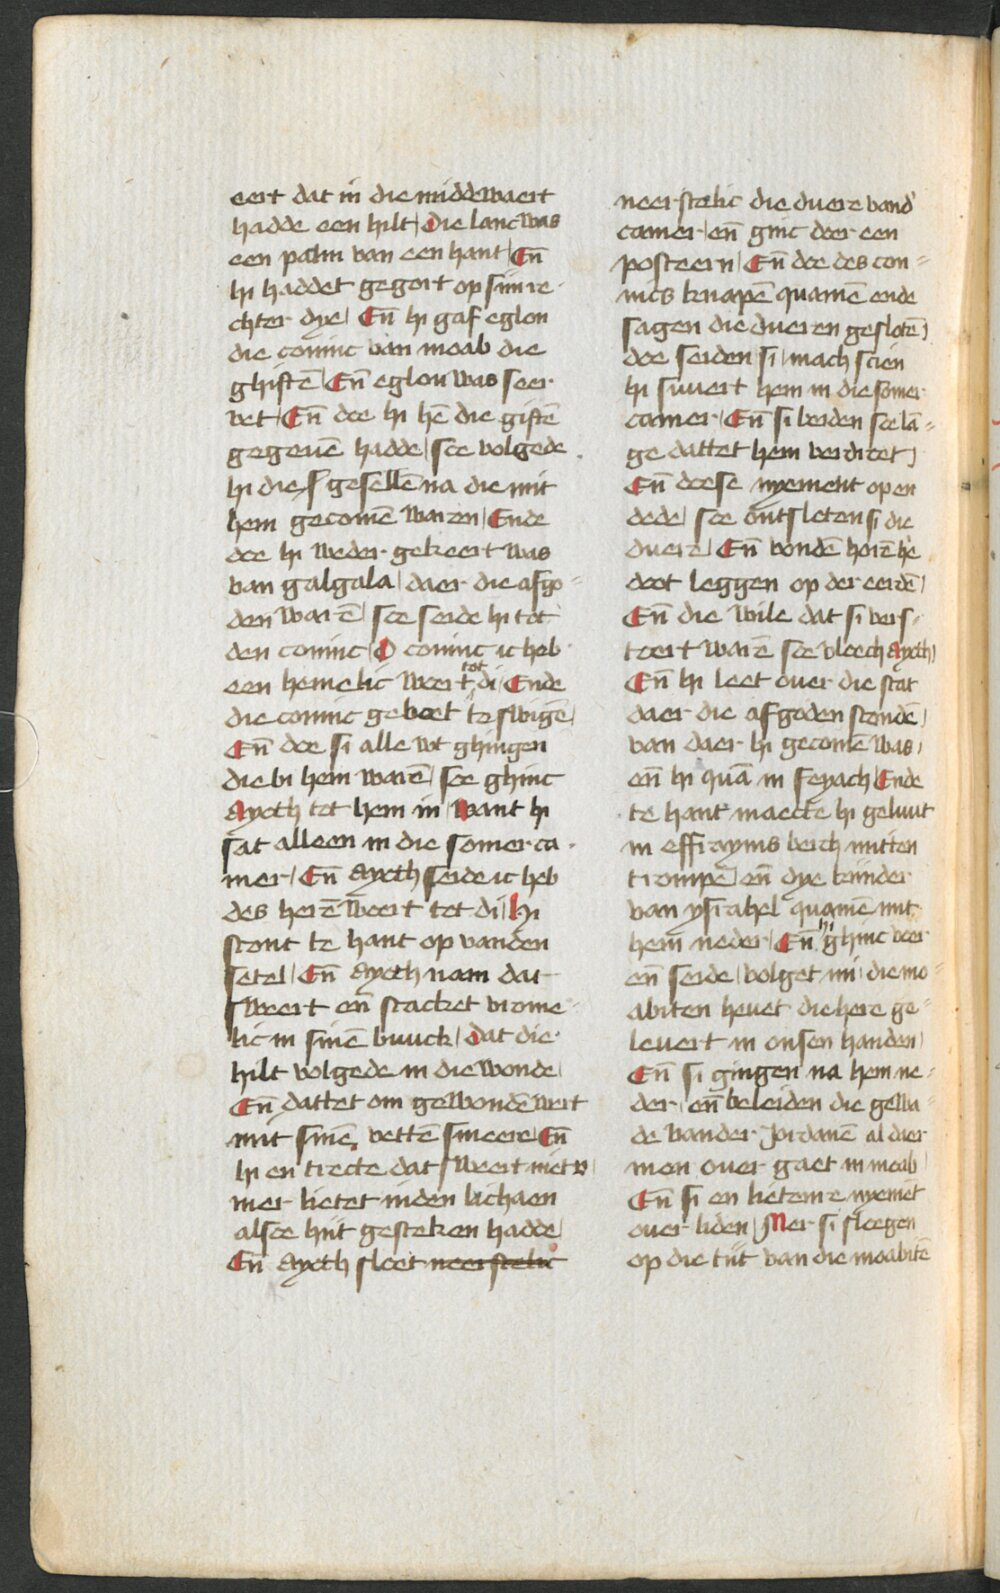 eert dat in die middewaert
hadde een hilt Die lanc was
een palm van een hant En̄
hi haddet gegort op sijn re-
chter dye En̄ hi gaf eglon
die coninc van moab die
ghiftē En̄ eglon was seer
vet En̄ doe hi hē die giftē
gegeuē hadde soe volgede
hi die gesellē na die mit
hem gecomē waren Ende
doe hi weder gekeert was
van galgala daer die afgo-
den warē soe seide hi tot
den coninc O coninc ic heb
een hemelic weert tot di Ende
die coninc geboet te swigē
En̄ doe si alle wt ghingen
die bi hem warē soe ghinc
Ayoth tot hem in Want hi
sat alleen in die somer ca-
mer En̄ Ayoth seide ic heb
des herē weert tot di Hi
stont te hant op vanden
setel En̄ Ayoth nam dat
sweert en̄ stacket vrome-
lic in sinē buuck Dat die
hilt volgede in die wonde
En̄ dattet om gewondē wert
mit sinē vettē smeere En̄
hi en trecte dat sweert niet w
mer lietet inden lichaen
alsoe hijt gesteken hadde
En̄ Ayoth sloet neerstelic
neerstelic die duere vand'
camer en̄ ginc doer een
posteern En̄ doe des con-
incs knapē quamē ende
sagen die dueren geslotē
doe seiden si mach scien
hi suuert hem in die somer
camer En̄ si beiden soe lā-
ge dattet hem verdroet
En̄ doese nyement open
dede soe ontsloten si die
duere En̄ vondē horē hē
doot leggen op der eerdē
En̄ die wile dat si vers-
toert warē soe vloech Ayoth
En̄ hi leet ouer die stat
daer die afgoden stondē
van daer hi gecomē was
en̄ hi quā in seyach Ende
te hant maecte hi geluut
in effrayms berch mitten
trompē en̄ dye kinder
van ysrahel quamē mit
hem neder En̄ hi ghinc voer
en̄ seide volget mi die mo-
abiten heuet die here ge-
leuert in onsen handen
En̄ si gingen na hem ne-
der en̄ beleiden die gewa-
de vander Jordanē al daer
men ouer gaet in moab
En̄ si en lietenre nyemēt
ouer liden Mer si sloegen
op die tijt van die moabitē